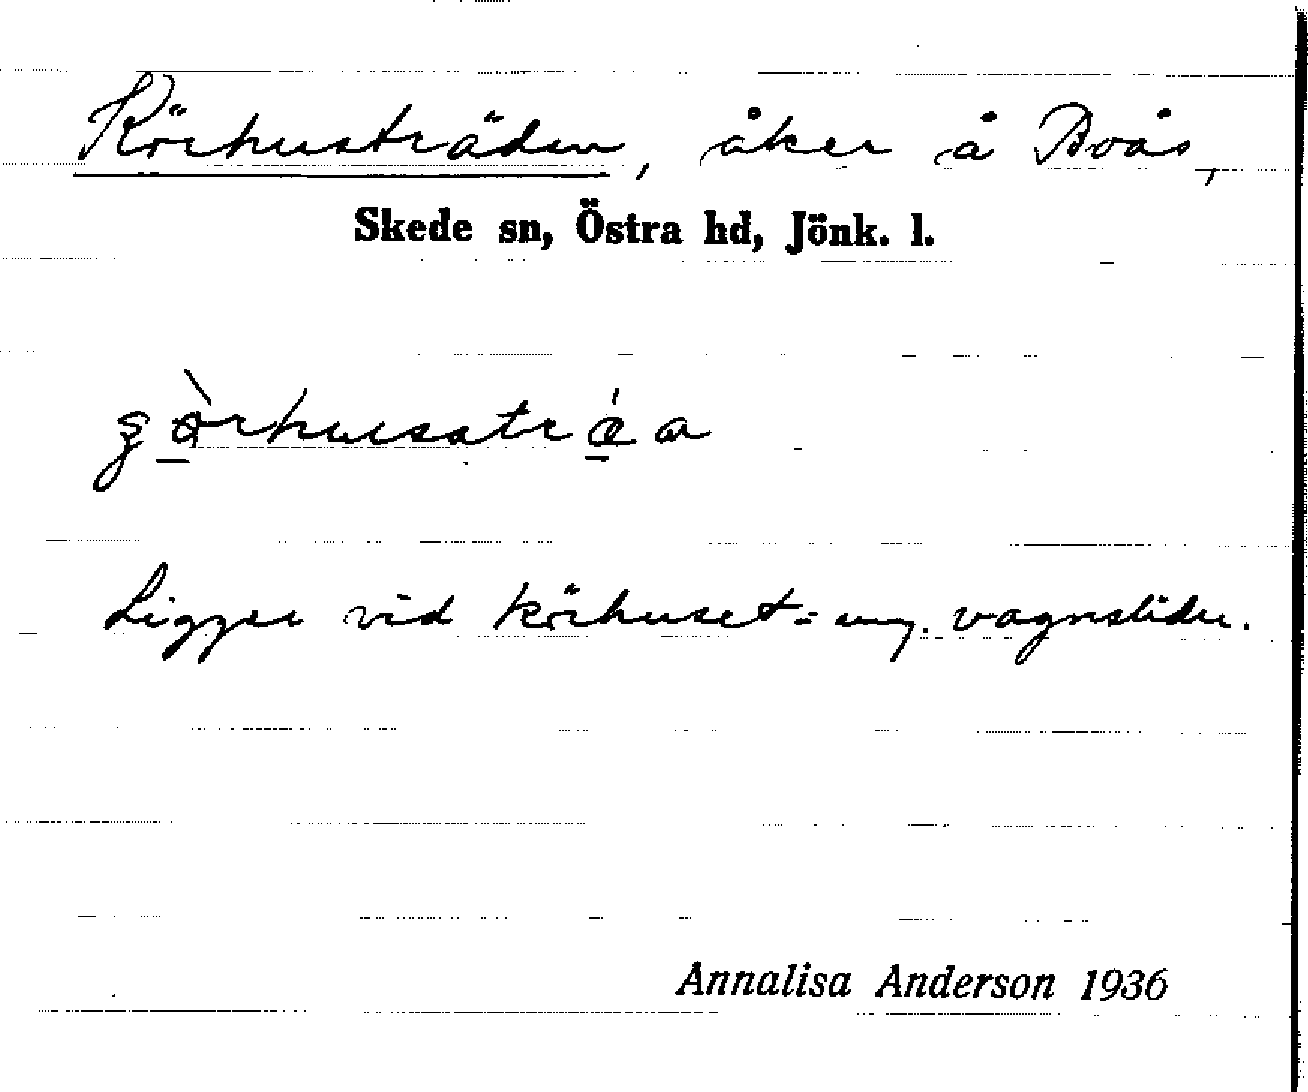 Körhusträden, åker å Boås,
Skede sn, Östra hd, Jönk. l.
Ligger vid körhuset = ung. vagnslider.
Annalisa Anderson 1936